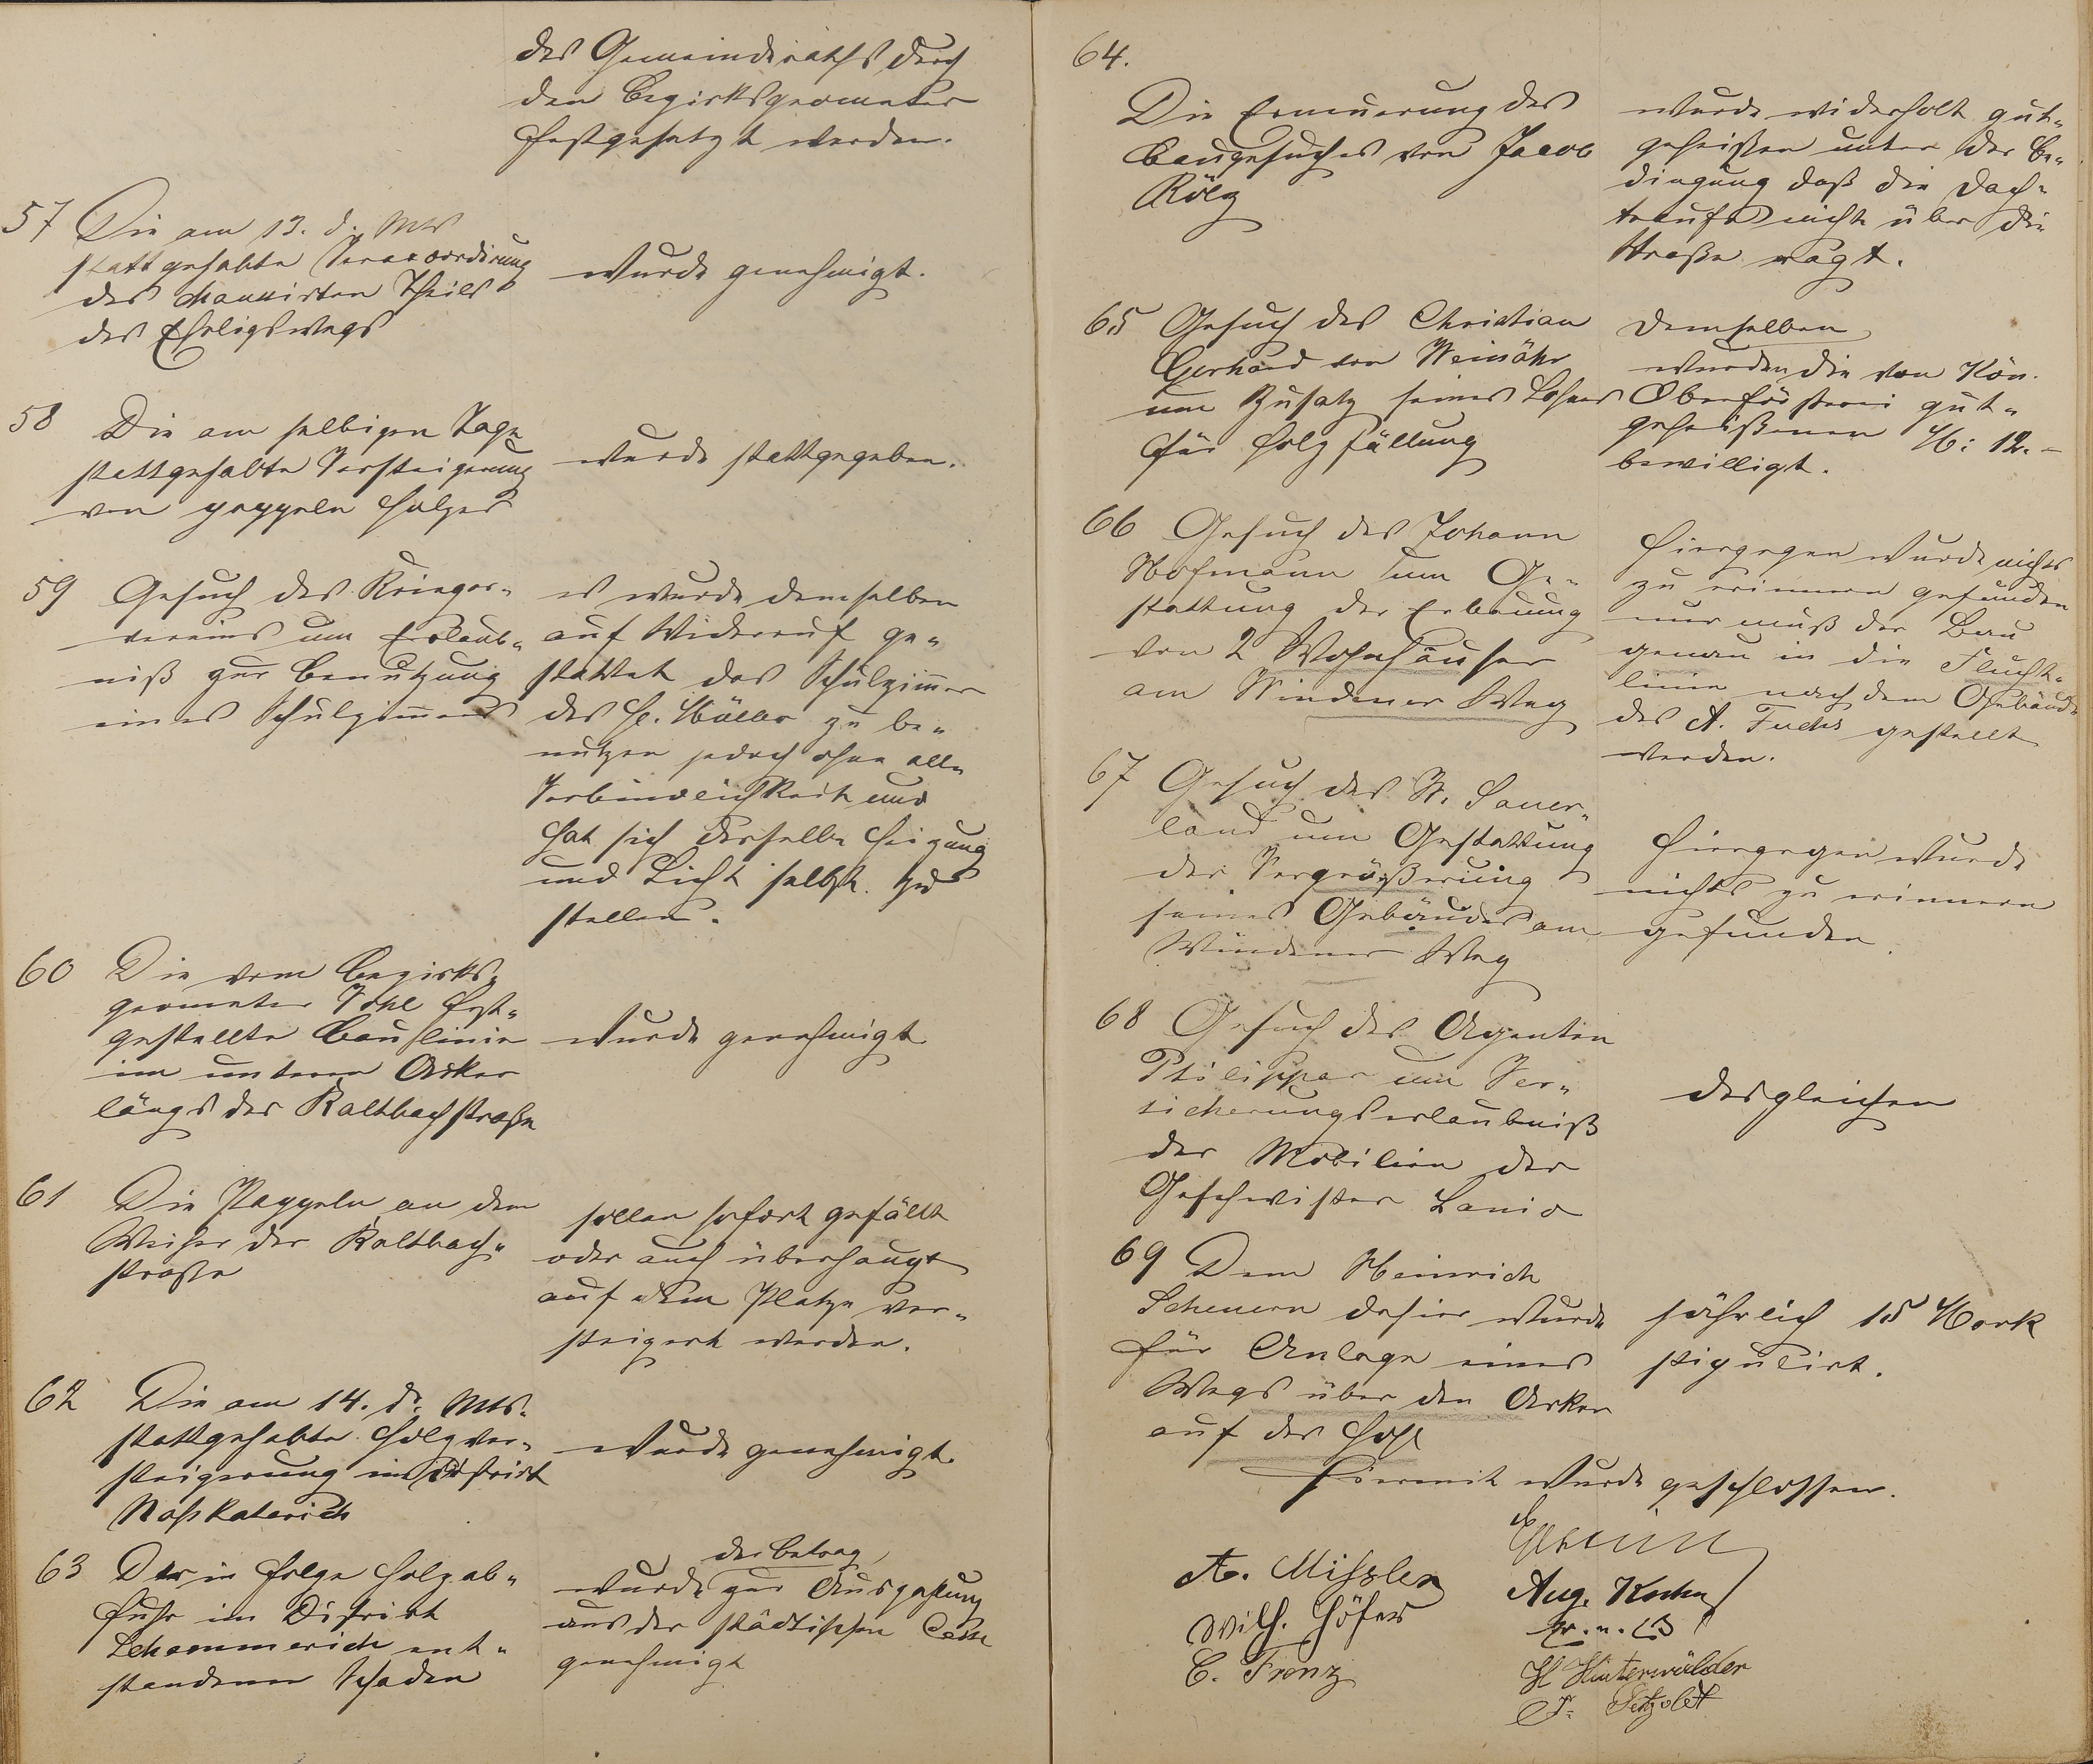 des Gemeinderaths durch
den Bezirksgeometer
festgesetzt werden.
57 Die am 13. d. Mts
stattgehabte Veraccordirung
des chaussirten Theils
des Eheligswegs
wurde genehmigt.
58 Die am selbigen Tage
stattgehabte Versteigerung
von pappeln Holzes
wurde stattgegeben.
59 Gesuch des Krieger-
vereins um Erlaub-
niß zur Benutzung
eines Schulzimmers
es wurde demselben
auf Widerruf ge-
stattet das Schulzimmer
des H. Müller zu be-
nutzen jedoch ohne alle
Verbindlichkeit und
hat sich derselbe Heizung
und Licht selbst zu
stellen.
60 Die vom Bezirks-
geometer Vohl fest-
gestellte Baufluchtlinie
im unteren Acker
längs der Kaltbachstraße
wurde genehmigt
61 Die Pappeln an dem
Weiher der Kaltbach-
straße
sollen sofort gefällt
oder auch überhaupt
auf dem Platze ver-
steigert werden.
62 Die am 14. d. Mts.
stattgehabte Holzver-
steigerung im District
Naßkaterich
wurde genehmigt.
63 Der in Folge Holzab-
fuhr im District
Schammerich ent-
standener Schaden
der Betrag
wurde zur Auszahlung
aus der städtischen Casse
genehmigt
64.
Die Erneuerung des
Baugesuches von Jacob
Kölz
wurde widerholt gut-
geheißen unter der Be-
dingung daß die Dach-
traufe nicht über die
Straße ragt.
65 Gesuch des Christian
Gerhard von Weinähr
um Zusatz seines Lohnes
für Holzfällung
Demselben
wurden die von Kön.
Oberförsterei gut-
geheißenen M: 12.-
bewilligt.
66 Gesuch des Johann
Hofmann um Ge-
stattung der Erbauung
von 2 Wohnhäuser
am Windener Weg
Hiergegen wurde nichts
zu erinnern gefunden
nur muß der Bau
genau in die Flucht-
linie nach dem Gebäude
des A. Fuchs gestellt
werden.
67 Gesuch des W. Sauer-
land um Gestattung
der Vergrößerung
seines Gebäudes am
Windener Weg
Hiergegen wurde
nichts zu erinnern
gefunden
68 Gesuch des Agenten
Philippar um Ver-
sicherungserlaubniß
der Mobilien der
Geschwister Lanio
desgleichen
69 Dem Heinrich
Scheuern dahier wurde
für Anlage eines
Wegs über den Acker
auf der Hohl
jährlich 15 Mark
stipulirt.
Hiermit wurde geschlossen.
A. Missler
Wilh. Höfer
C. Fronz
Aug. Kuhn
H Hinterwälder